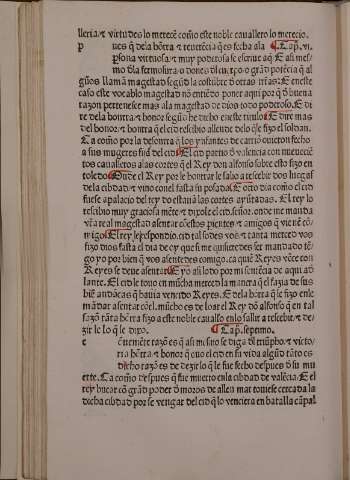 lleria ⁊ virtudes lo merecē como este noble cauallero lo merecio.
p ues q̃ dela hōrra ⁊ reuerēcia q̃ es fecha ala ¶ Cap. vi.
psona virtuosa ⁊ muy poderosa se escriue aq̃. E assi mes-
mo dla fermosura o dones dl cuerpo o grād potēcia q̃ al
gūos llamā magestad segūd la costūbre d̄ otras trras: E eneste
caso este vocablo magestad nō entiēdo poner aqui por q̃ d̄ buena
razon pertenesce mas ala magestad de dios todo poderoso. E di
re dela honrra ⁊ honor segū he dicho eneste titulo. E dire mas
del honor: ⁊ honrra q̃ el cid rescibio allende delo q̃le fizo el soldan.
Ca como por la desonrra q̃ los ynfantes de carriō ouieron fecho
a sus mugeres fijas del cid: El cid partio d̄ valencia con nueuecētos
caualleros alas cortes q̃ el Rey don alfonso sobre esto fizo en
toledo. Onde el Rey por le honrrar le salio a rescebir dos leguas
dela cibdad ⁊ vino conel fasta su posada. E otro dia como el cid
fuese apalacio del rey do estauā las cortes ayūtadas. El rey lo
rescibio muy graciosa mēte ⁊ dixole el cid. señor. onde me manda
vr̄a real magestad asentar cō estos parientes ⁊ amigos q̃ vienē cō
migo. El rey le respondio. cid tal sodes vos ⁊ tanta merced vos
fizo dios fasta el dia de oy que si me quisierdes ser mandado tē-
go yo por bien q̃ vos asentedes comigo. ca quiē Reyes vēce con
Reyes se deue asentar. E yo assi lo do por mi sentencia de aqui ad
lante. El cid le touo en mucha merced la mancra q̃l fazia de sus
biē andāças q̃ hauia vencido Reyes. E dela hōrra q̃ le fizo enle
mādar asentar cō el. mucho es de loar el Rey dō alfonso q̃ en tal
razō tāta hōrra fizo a este noble cauallero enlo sallir a rescebir. ⁊ de-
zir le lo q̃ le dixo. ¶ Cap. septimo.
c ōueniēte razō es q̃ asi mesmo se diga dl triūpho. ⁊ victo-
ria hōrra ⁊ honor que ouo el cid en su vida algūd tāto es
dicho razō es de dezir lo q̃ le fue fecho despues d̄ su mu
erte. Ca como despues q̃ fue muerto enla cibdad de valēcia. E el
rey bucar cō grād poder d̄ moros de allen mar touiese cercada la
dicha cibdad por se vengar del cid q̃ lo venciera en batalla cāpal